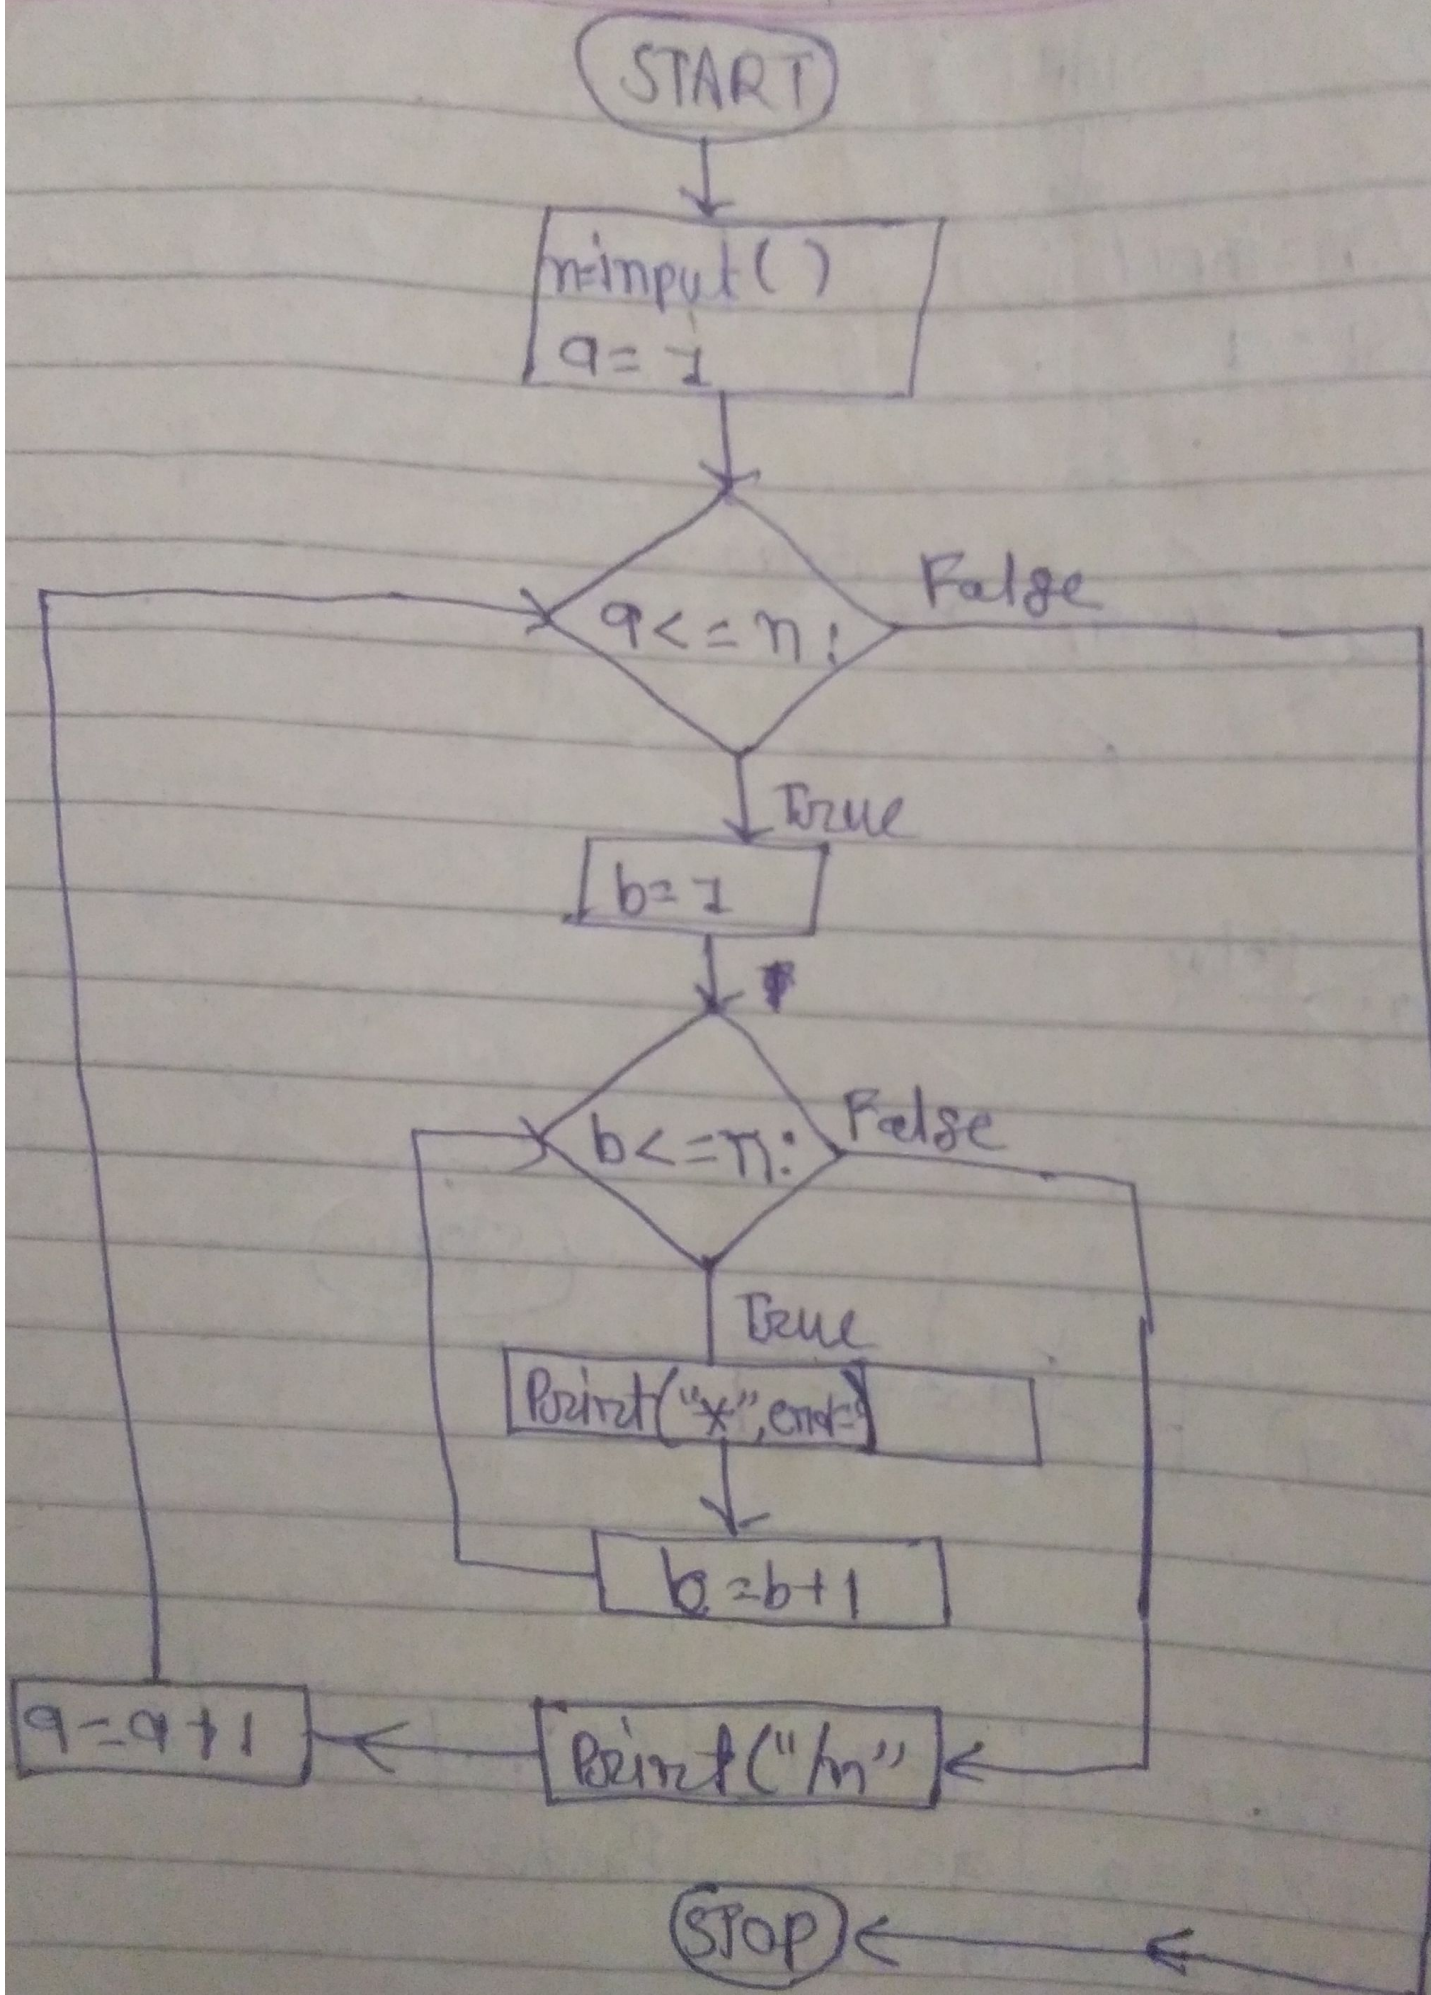 START
n=input()
a=1
a<=n:
False
True
b=1
b<=n:
False
True
Print("*",end=")
b=b+1
Print("/n"
a=a+1
STOP